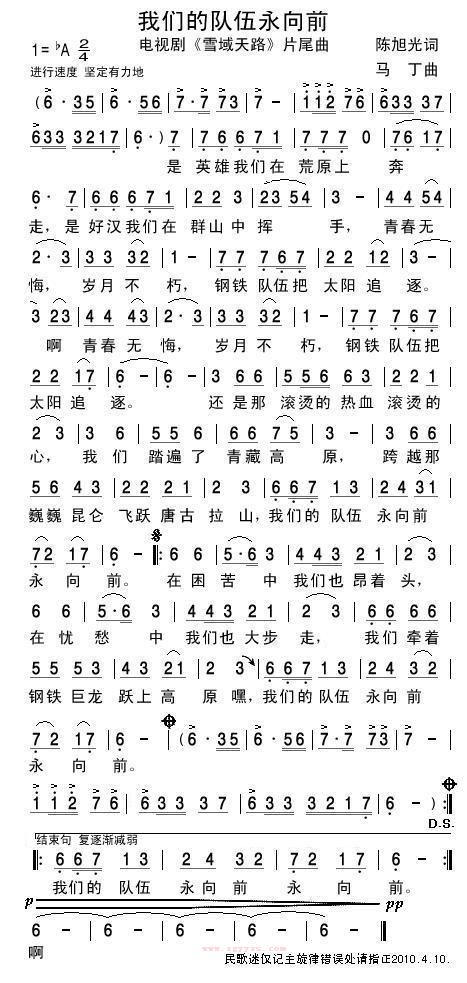 我们的队伍永向前
1=♭A 2/4 电视剧《雪域天路》片尾曲 陈旭光词
进行速度 坚定有力地 马 丁曲
(6· 35 | 6· 56 | 7·7 73 | 7- | 112 76 | 633 37 |
633 3217 | 6·) 7 | 7 6 6 7 1 | 7 7 7 0 | 76 17 |
是 英雄我们在 荒原上 奔
6· 7 | 6 6 6 7 1 | 2 2 3 | 23 54 | 3 - | 4 4 54 |
走,是 好汉我们在 群山中 挥 手, 青春无
2· 3 | 3 3 32 | 1 - | 7 7 7 6 7 | 2 2 12 | 3 - |
悔, 岁月不 朽, 钢铁 队伍把 太阳 追 逐。
3 23 | 4 4 43 | 2· 3 | 3 3 32 | 1 - | 7 7 7 6 7 |
啊 青春 无 悔, 岁月 不 朽, 钢铁 队伍把
2 2 17 | 6 - | 6 - | 3 6 6 | 5 5 6 6 3 | 2 2 1 |
太阳 追 逐。 还 是那 滚烫的 热血 滚烫的
2 3 | 3 6 | 5 5 6 | 2 2 6 5 | 3 - | 3 6 6 |
心, 我 们 踏遍了 青藏高 原, 跨 越那
5 6 4 3 | 2 2 2 1 | 2 3 | 6 6 7 1 3 | 2 4 31 |
巍巍 昆仑 飞跃 唐古 拉 山,我们的 队伍 永向前
72 17 | 6 - 𝄋 :| 6 6 | 5·6 3 | 3 4 4 3 | 2 2 1 |
永 向 前。 在 困 苦 中 我们也 昂着 头,
6 6 | 5·6 3 | 3 4 4 3 | 2 2 1 | 2 3 | 6 6 6 6 |
在 忧 愁 中 我们也 大步 走, 我们 牵着
5 5 5 3 | 4 3 21 | 2 3 | 6 6 7 1 3 | 2 4 32 |
钢铁 巨龙 跃上 高 原 嘿,我们的 队伍 永向前
7 2 17 | 6 - | 6 - | (6· 35 | 6· 56 | 7·7 73 | 7 - |
永 向 前。
1 1 2 76 | 633 37 | 633 3217 | 6 -) :|
D.S.
结束句 复逐渐减弱
|: 6 6 7 1 3 | 2 4 3 2 | 7 2 17 | 6 - :|
我们的 队伍 永向前 永 向 前。
p pp
6 - | 6 - | 6 - | 6 - |
啊
www.sgyyxs.com
民歌迷仅记主旋律错误处请指正2010.4.10.